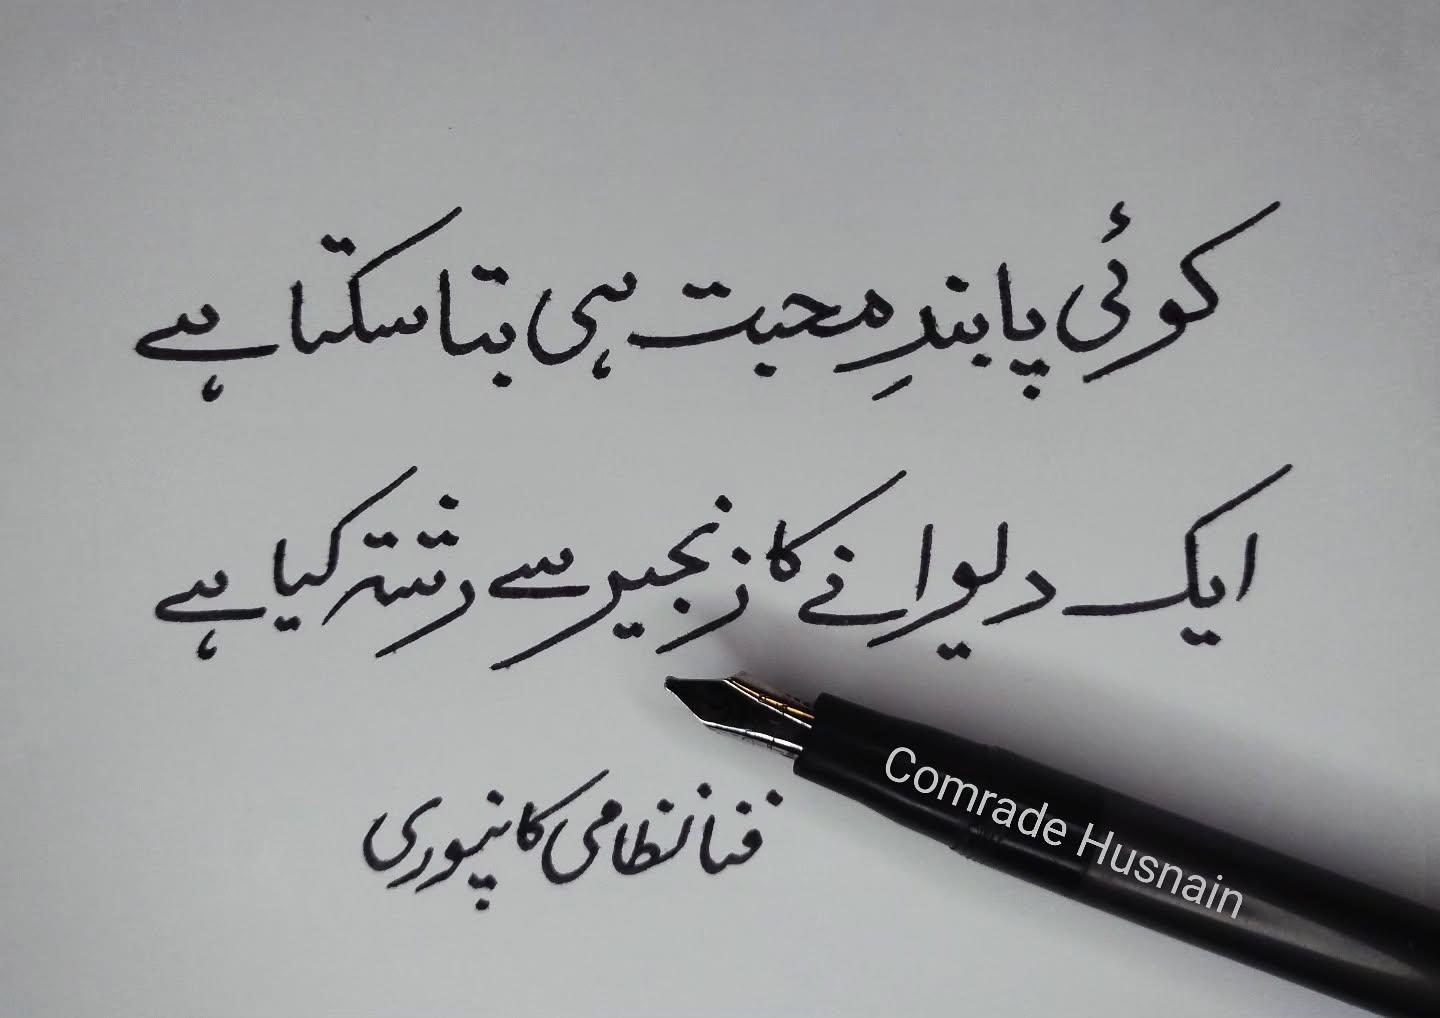 کوئی پابندِ محبت ہی بتا سکتا ہے
ایک دیوانے کا زنجیر سے رشتہ کیا ہے
فنا نظامی کانپوری
Comrade Husnain